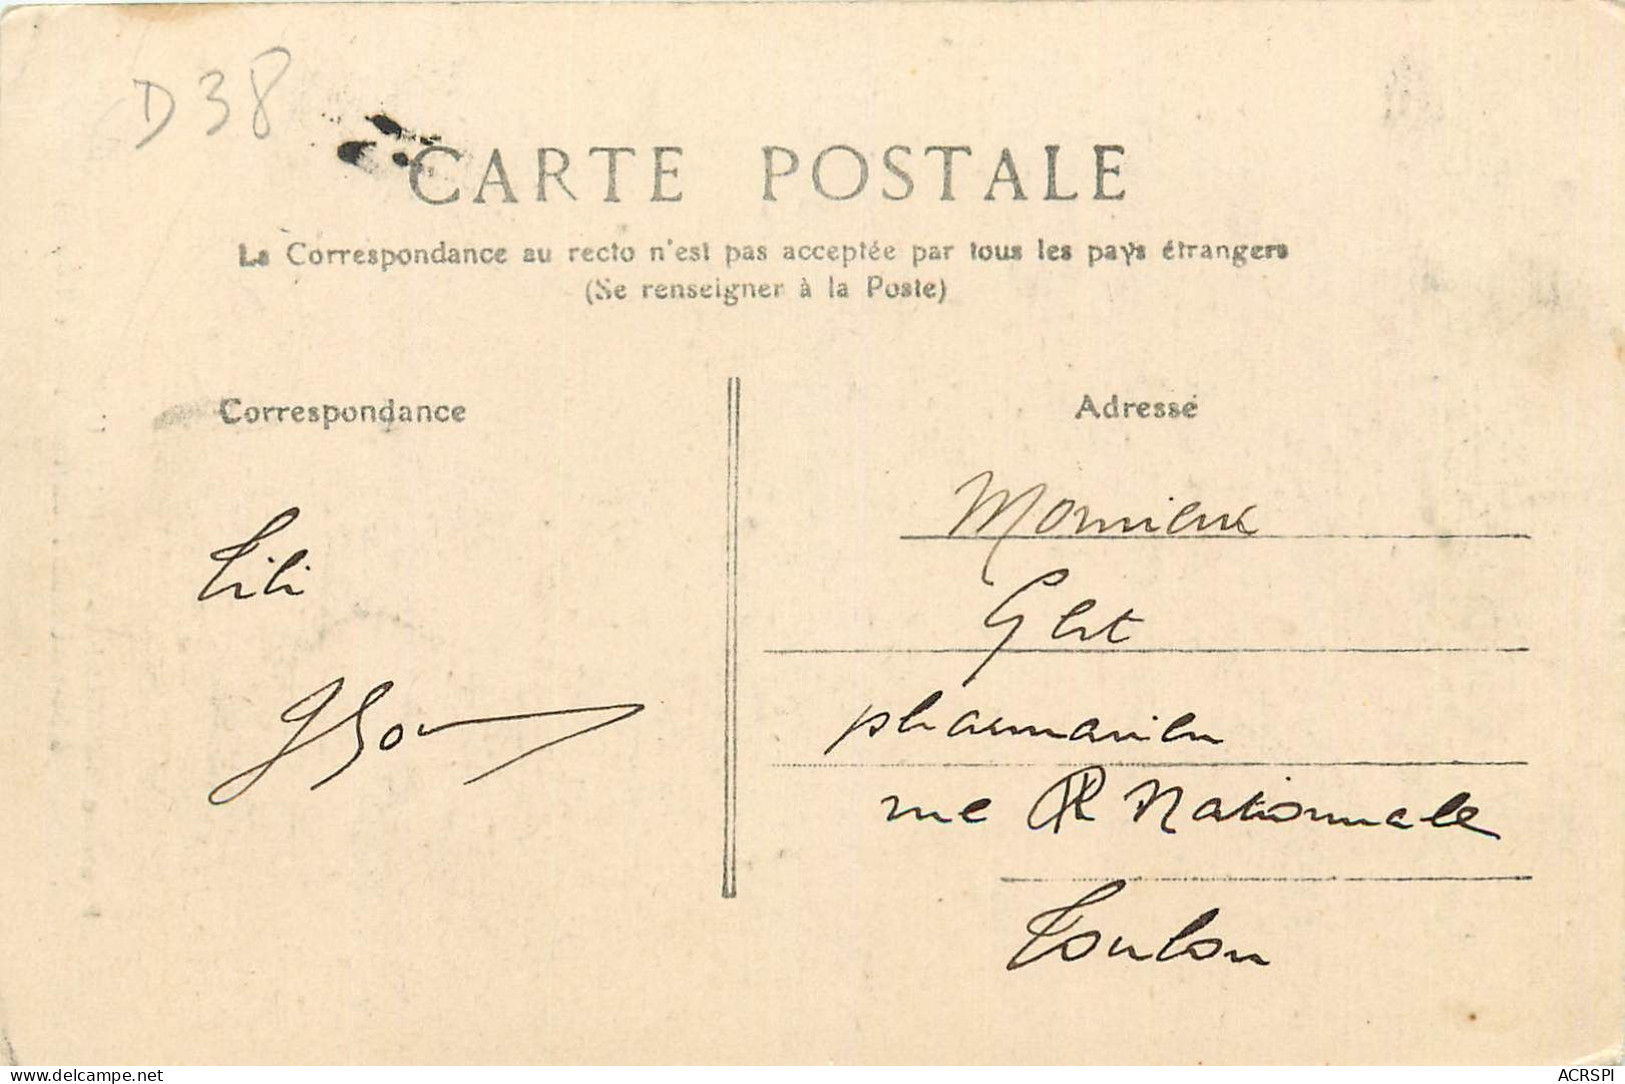 D38
CARTE POSTALE
La Correspondance au recto n'est pas acceptée par tous les pays étrangers
(Se renseigner à la Poste)
Correspondance
Adresse
Lili
Monsieur
pharmacien
rue Nationale
Toulon
www.delcampe.net
ACRSPI